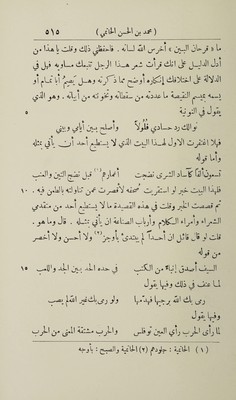 ( محمد بن الحسن الحاتمي ) ٥١٥
ما « قرحان البين » أخرس الله لسانه . فاحفظني ذلك وقلت يا هذا من
أدل الدليل على أنك قرأت شعر هذا الرجل تتبعك مساويه فهل في
الدلالة على اختلافك إنكاره أوضح مما ذكرته وهل يصم أبا تمام أو
يسمه بميسم النقيصة ما عددته من سقطاته وتخونته من أبياته . وهو الذي
يقول في النونية ٥
نوالك رد حسادي فلولاً وأصلح بين أيامي وبيني
فهلا اغتفرت الأول لهذا البيت الذي لا يستطيع أحد أن يأتي بمثله
وأما قوله
تسعون ألفًا كآساد الشرى نضجت أعمارهم قبل نضج التين والعنب
فلهذا البيت خبر لو استقريت صحفه لأقصرت عمن تناولته بالطعن فيه . ١٠
ثم قصصت الخبر وقلت في هذه القصيدة ما لا يستطيع أحد من متقدمي
الشعراء وأمراء الكلام وأرباب الصناعة أن يأتي بمثله . قال وما هو .
قلت لو قال قائل ان أحداً لم يبتدئ بأوجز (٢) ولا أحسن ولا أخصر
من قوله
السيف أصدق إنباء من الكتب في حده الحد بين الجد واللعب ١٥
لما عنف في ذلك وفيها يقول
رمى بك الله برجيها فهدّمها ولو رمى بك غير الله لم يصب
وفيها يقول
لما رأى الحرب رأي العين توفلس والحرب مشتقة المعنى من الحرب
( ١ ) الحاتمية : جلودهم (٢) الحاتمية والصبح : بأوجه